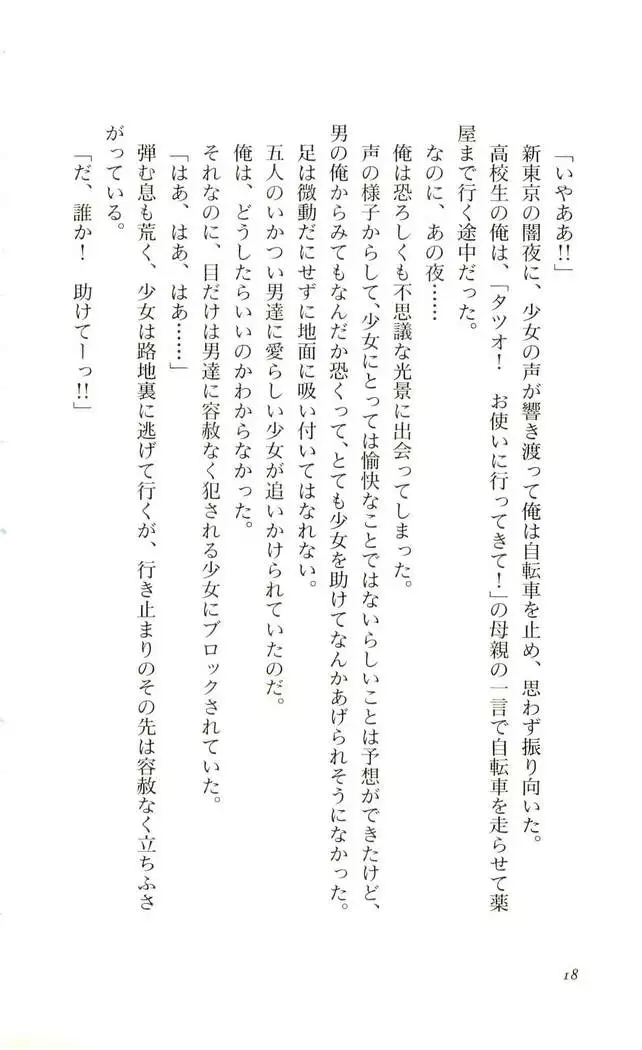 「いやああ!!」
新東京の闇夜に、少女の声が響き渡って俺は自転車を止め、思わず振り向いた。
高校生の俺は、「タツオ！　お使いに行ってきて！」の母親の一言で自転車を走らせて薬
屋まで行く途中だった。
なのに、あの夜……
俺は恐ろしくも不思議な光景に出会ってしまった。
声の様子からして、少女にとっては愉快なことではないらしいことは予想ができたけど、
男の俺からみてもなんだか恐くって、とても少女を助けてなんかあげられそうになかった。
足は微動だにせずに地面に吸い付いてはなれない。
五人のいかつい男達に愛らしい少女が追いかけられていたのだ。
俺は、どうしたらいいのかわからなかった。
それなのに、目だけは男達に容赦なく犯される少女にブロックされていた。
「はあ、はあ、はあ……」
弾む息も荒く、少女は路地裏に逃げて行くが、行き止まりのその先は容赦なく立ちふさ
がっている。
「だ、誰か！　助けてーっ!!」
18